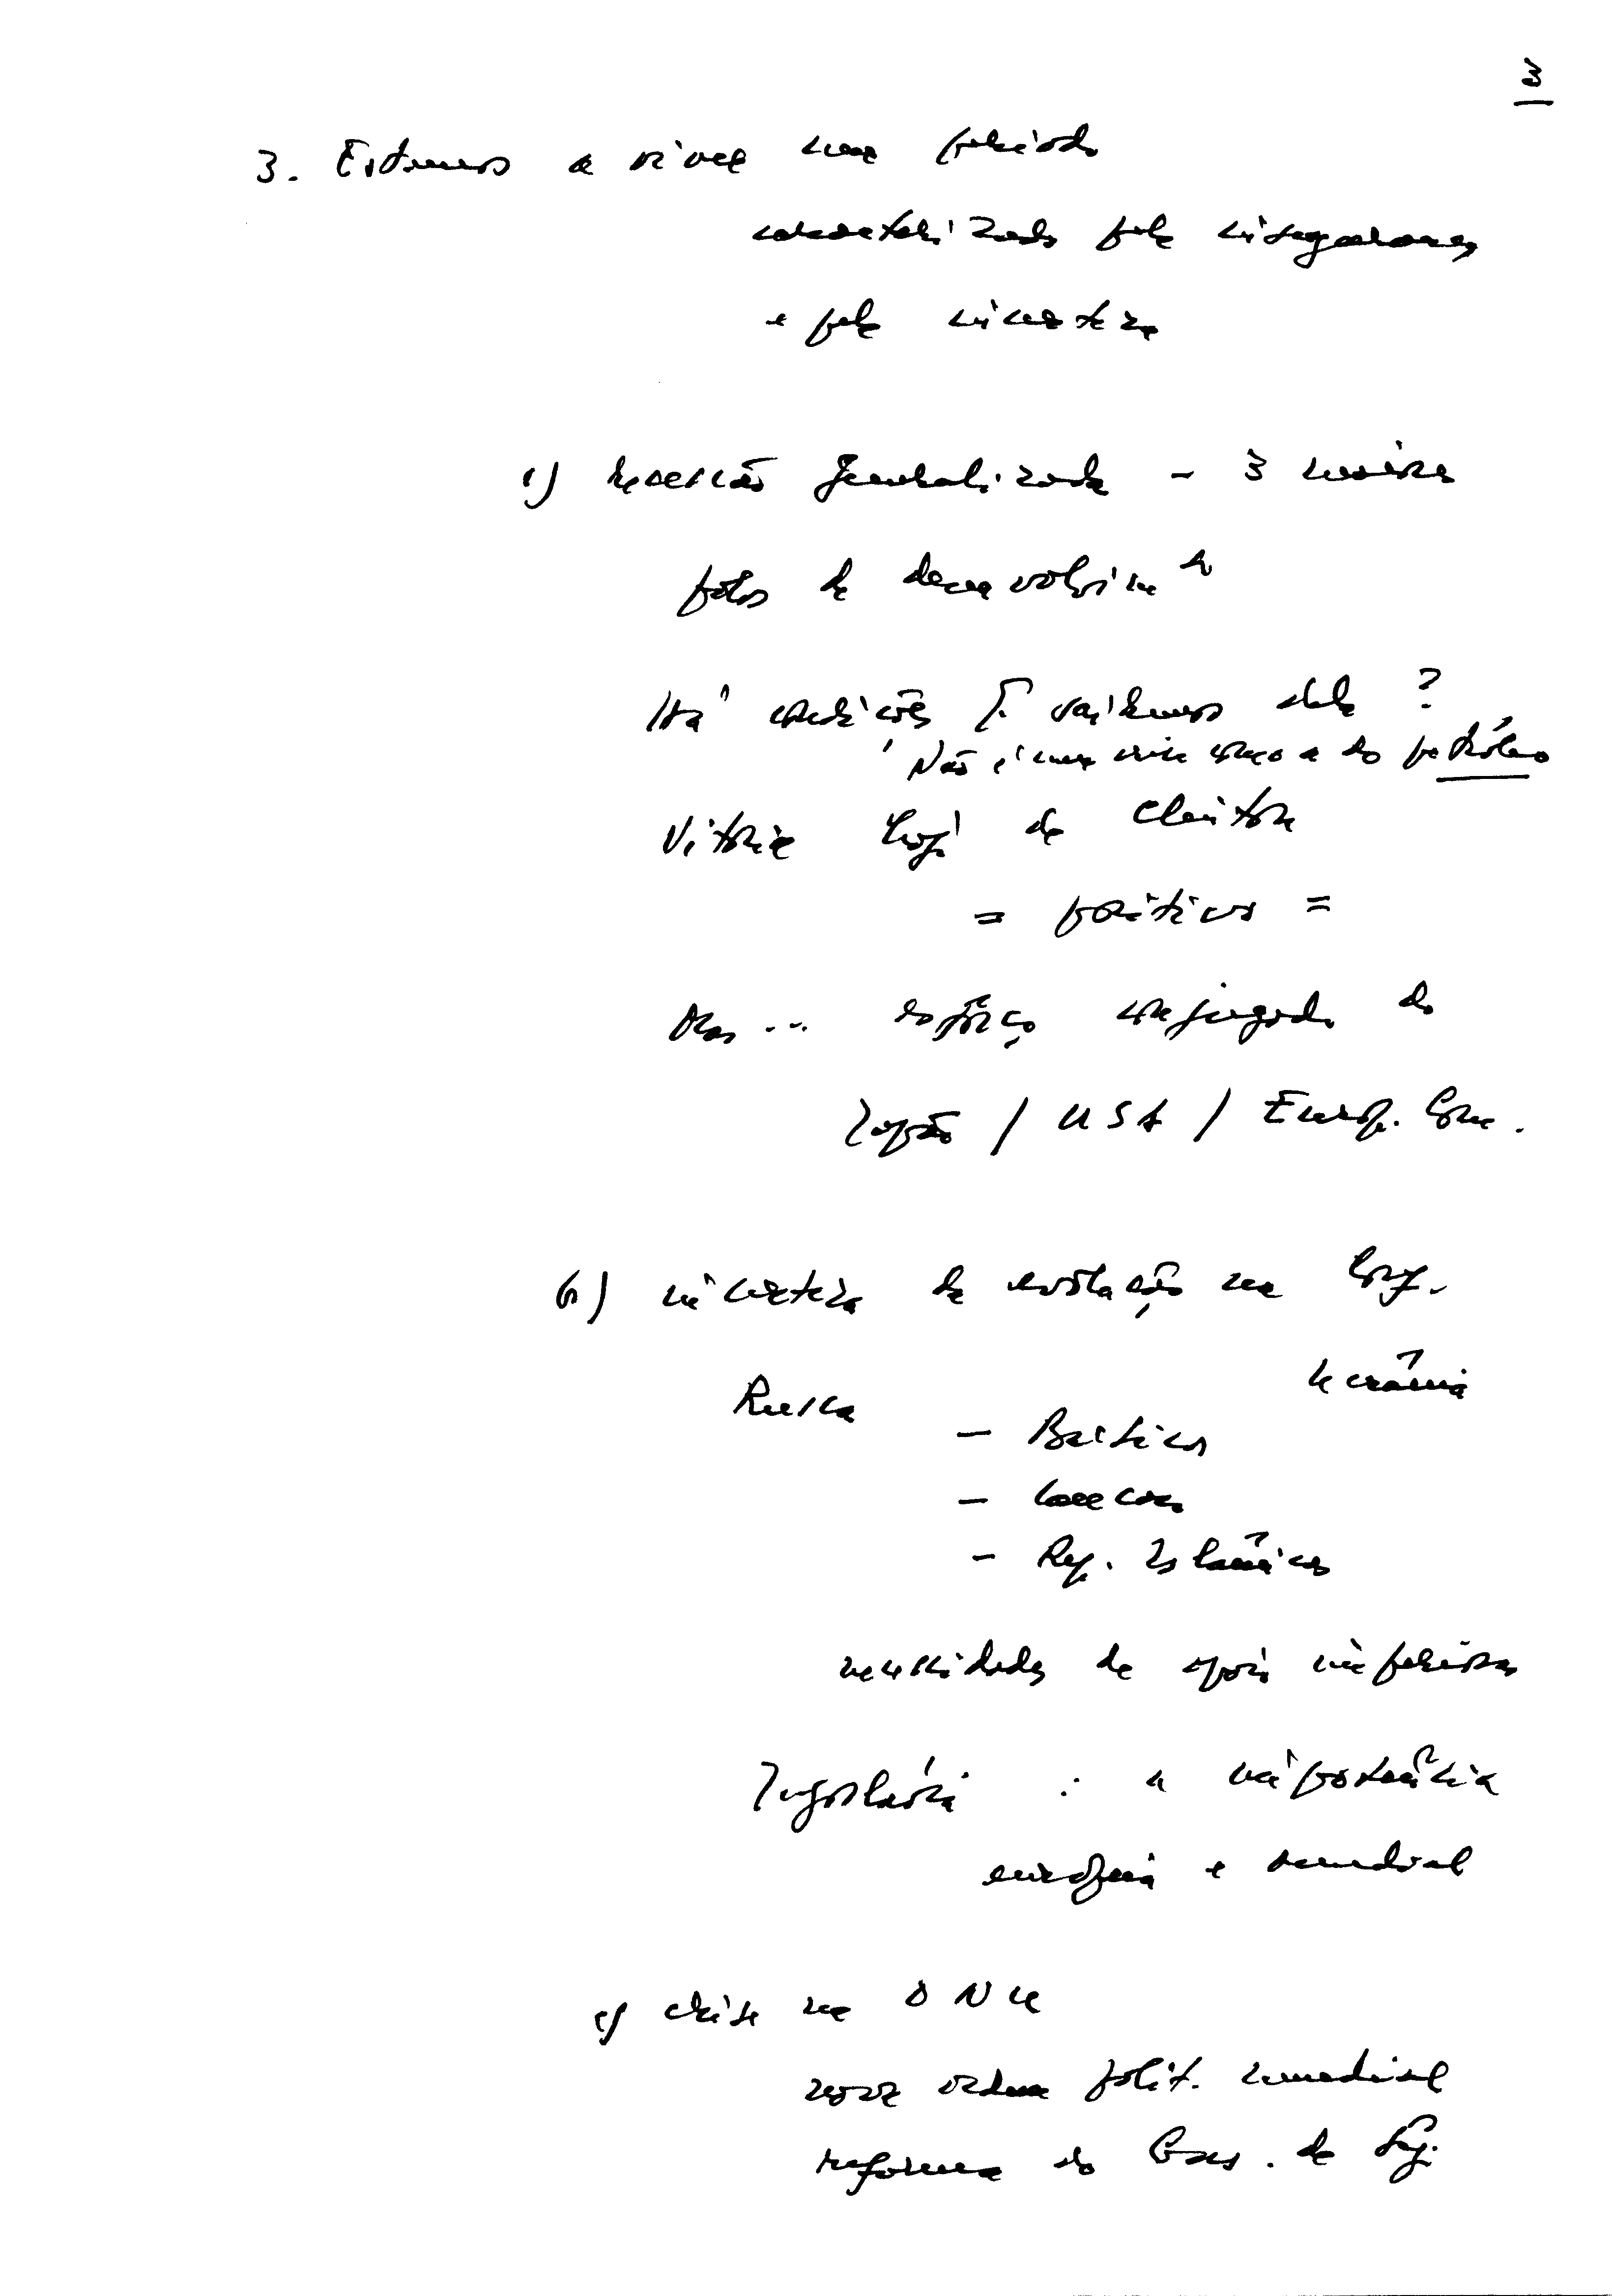 3
3. Estamos a viver um período
caracterizado pela insegurança
e pela incerteza
a) recessão generalizada - 3 maiores
polos de desenvolvimto
Há condições p. sairmos dela ?
Não é uma crise como a do petróleo
Vitória hoje de Clinton
= positivo =
Mas ... esforço conjugado do
Japão / USA / Europ. Com.
b) incerteza da evolução na Europ.
Ucrânia
Russa
- Bálticos
- Caucaso
- Rep. Islâmicas
necessidades de apoio
Jugoslávia : a impotência
europeia e mundial
c) crise na ONU
nova ordem polít. mundial
reforma do Cons. de Seg.